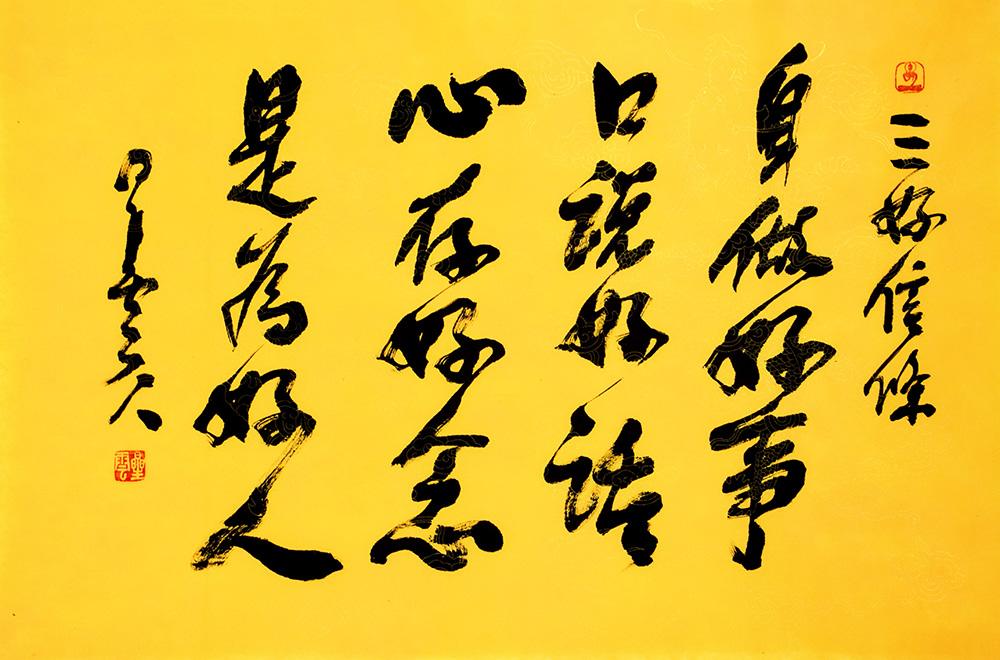 三好信條
身做好事
口說好話
心存好念
是為好人
星雲
星雲